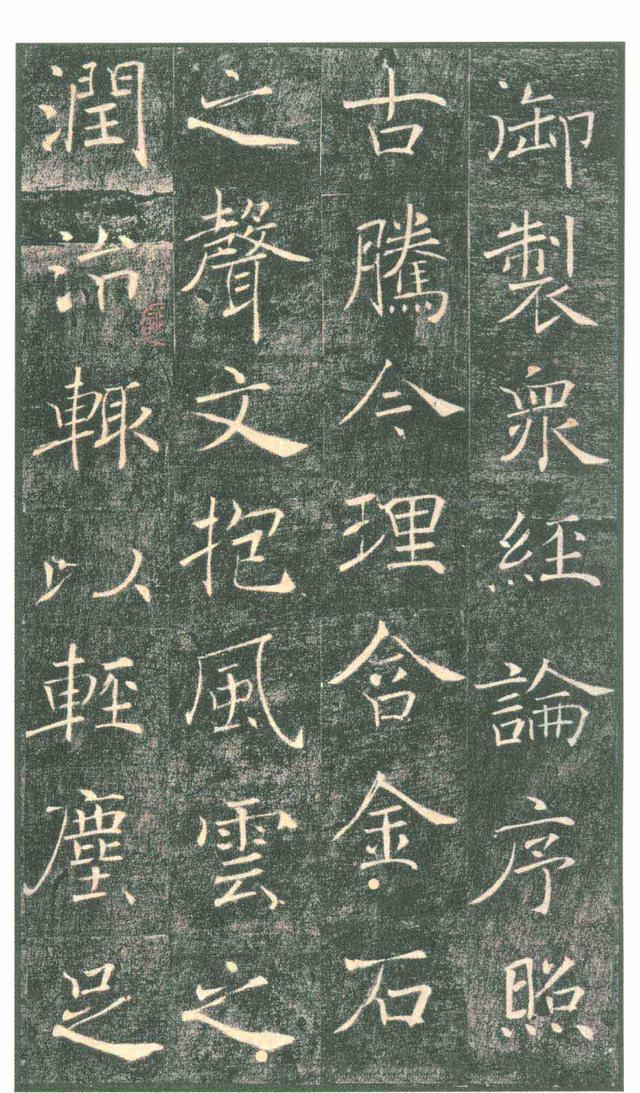 御製衆經論序照
古騰今理含金石
之聲文抱風雲之
潤治輒以輕塵足